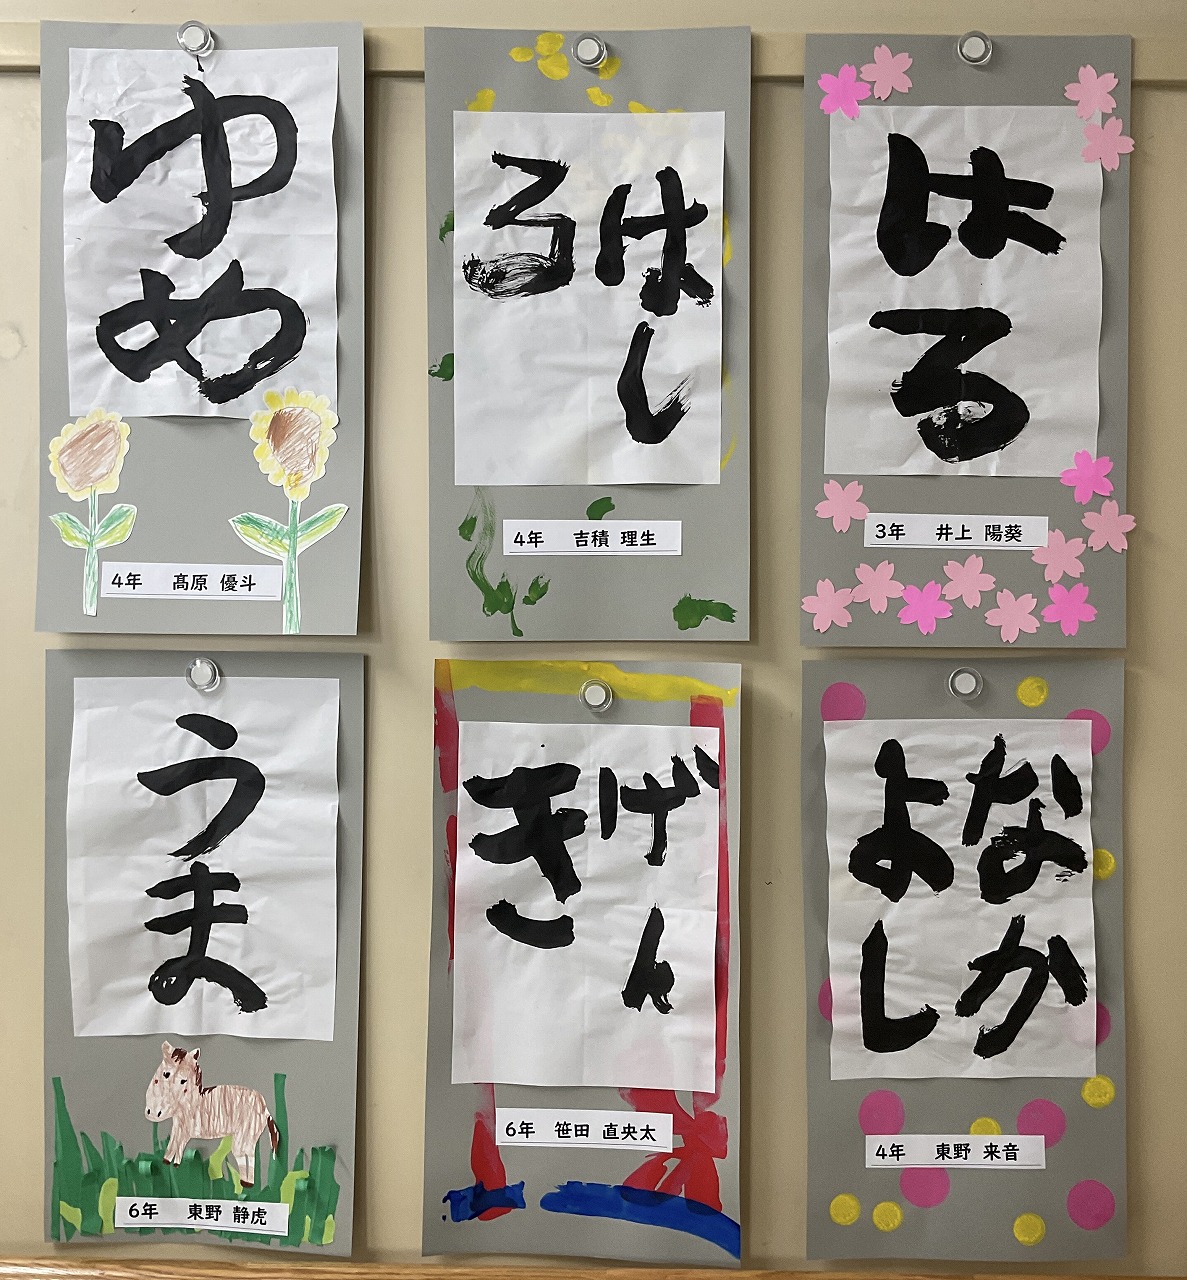 ゆめ
4年 髙原 優斗
はし
る
4年 吉積 理生
はる
3年 井上 陽葵
うま
6年 東野 静虎
げん
き
6年 笹田 直央太
なか
よし
4年 東野 来音